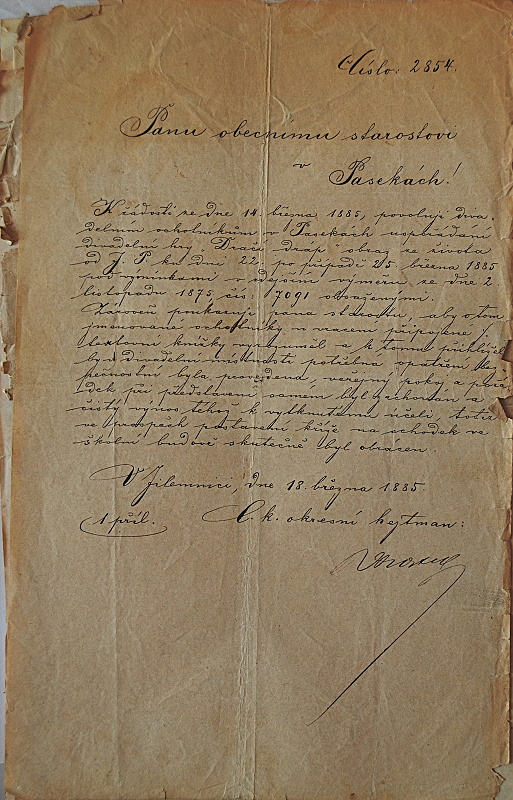 Číslo: 2854.
Panu obecnímu starostovi
v
Pasekách!
K žádosti ze dne 14. března 1885, povoluji diva-
delním ochotníkům v Pasekách uspořádání
divadelní hry „Dračí dráp" obraz ze života
od J. P. ku dni 22. po případě 25. března 1885
pod výminkami v zdejším výměru ze dne 2
listopadu 1875, čís. 7091 obsaženými.
Zároveň poukazuji pana starostu, aby o tom
jmenované ochotníky u vracení připojené /.
textovní knížky vyrozuměl a k tomu přihlížel
by v divadelní místnosti potřebná opatření bez-
pečnostní byla provedena, veřejný pokoj a pořá-
dek při představení samém byl zachován a
čistý výnos téhož k vytknutému účeli, totiž
ve prospěch postavení kříže na schodek ve
školní budově skutečně byl obrácen.
V Jilemnici, dne 18. března 1885
1 příl. C. k. okresní hejtman: